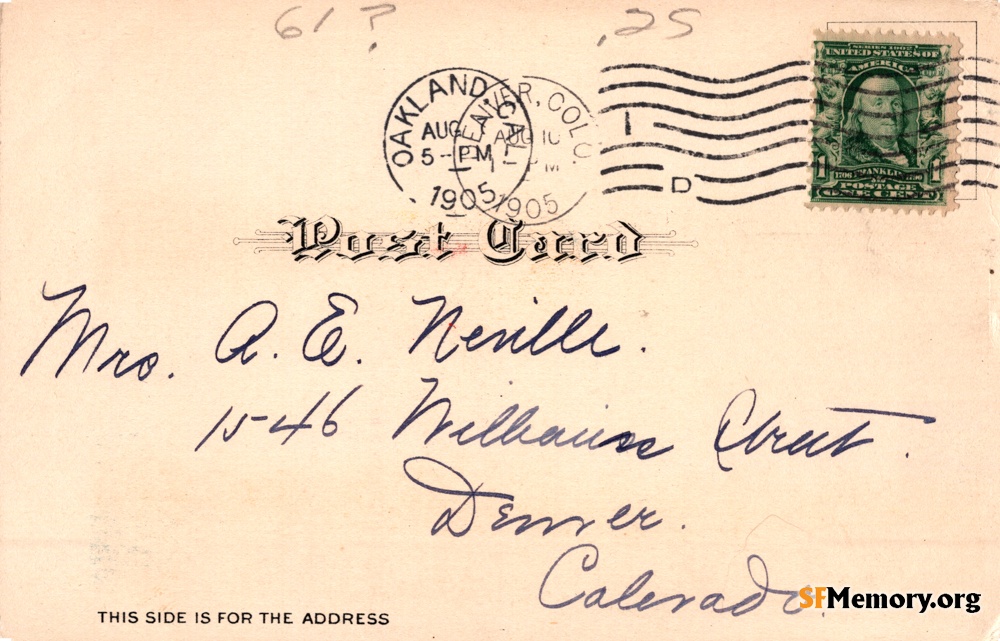 61 ? .25
SERIES 1902
UNITED STATES OF
AMERICA
1706 FRANKLIN 1790
POSTAGE
1 ONE CENT 1
OAKLAND, CAL.
AUG
5 - PM
1905
DENVER, COLO.
AUG 10
PM
1905
D
Post Card
Mrs. A. E. Neville.
1546 Williams Street.
Denver.
Colorado.
THIS SIDE IS FOR THE ADDRESS
SFMemory.org